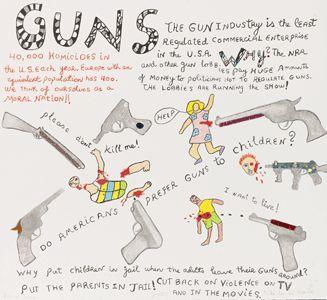 GUNS
40,000 HOMICIDES IN
THE U.S. EACH YEAR. EUROPE WITH AN
EQUIVALENT POPULATION HAS 400.
WE THINK OF OURSELVES AS A
MORAL NATION!!
THE GUN INDUSTRY IS THE LEAST
REGULATED COMMERCIAL ENTERPRISE
IN THE U.S.A. WHY? THE NRA
AND OTHER GUN LOBBIES PAY HUGE AMOUNTS
OF MONEY TO POLITICIANS NOT TO REGULATE GUNS.
THE LOBBIES ARE RUNNING THE SHOW!
HELP
please don't kill me!
DO AMERICANS PREFER GUNS TO children?
I want to live!
WHY PUT CHILDREN IN JAIL WHEN THE ADULTS LEAVE THEIR GUNS around?
PUT THE PARENTS IN JAIL! CUT BACK ON VIOLENCE ON TV
AND IN THE MOVIES